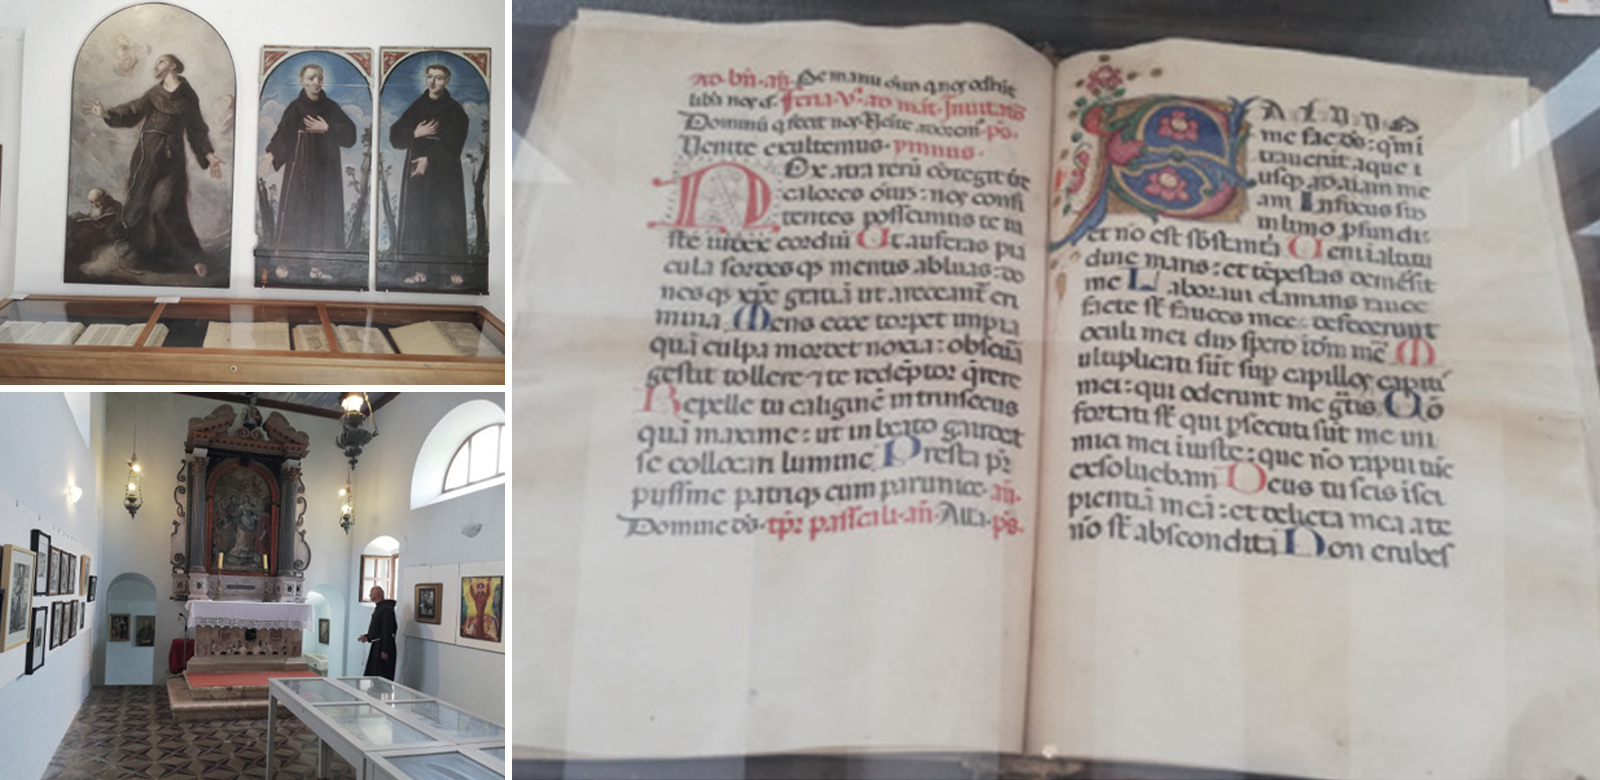 ad bn̄. an̄. De manu oium q nos oderūt
libā nos d. Feria .vᵃ. ad mat. Inuitatʳ
Dominū q fecit nos Uenite adorem. ps.
Uenite exultemus. ymnus.
Nox atra rerū cōtegit
colores om̄s: nos confi
tentes poscimus te iu
ste iudex cordiū Ut auferas pia
cula sordes qs mentis abluas: do
nes qs xp̄e grā.i ut arceant cri
mina Mens ecce torpet impia
quā culpa mordet noxia: obscurā
gestit tollere ⁊ te redēptor q̄rere
Repelle tu caliginē intrinsecus
quā maxime: ut in beato gaudeat
se collocari lumine Presta pr̄
pijssime patriqs cum parunice. an̄.
Domine ds. tp̄r paschali. an̄. Alla. ps.
SALUUM
me fac ds: qm̄ i
trauerūt aque
usqs ad aiam me
am Infixus sū
in limo pfundi:
et nō est sbstantiā Ueni i altitu
dinē maris: et tēpestas demersit
me Laboraui clamans rauce
facte st̄ fauces mee: defecerunt
oculi mei dum spero i dm̄ mē M
ultiplicati sūt sup capillos capitis
mei: qui oderunt me gratis Cō
fortati st̄ qui psecuti sūt me ini
mici mei iniuste: que nō rapui tūc
exsoluebam Deus tu scis isi
pientiā meā: et delicta mea a te
nō st̄ abscondita Non erubes